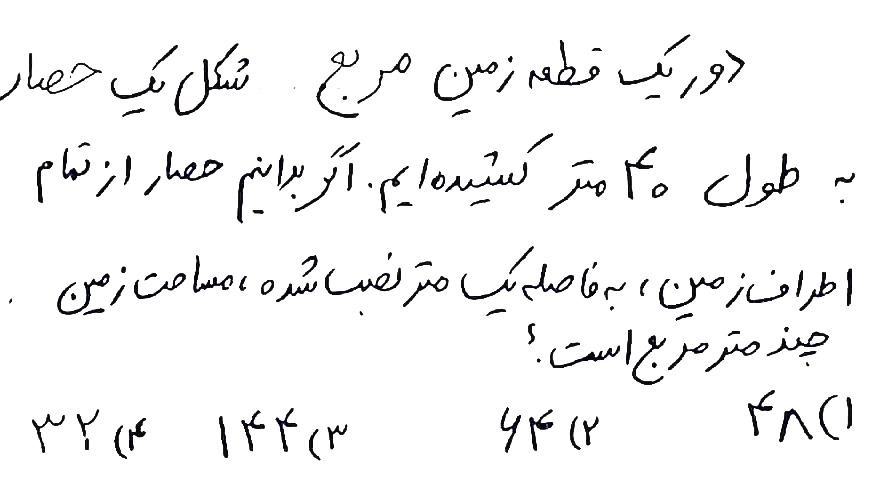 دور یک قطعه زمین مربع شکل یک حصار
به طول ۴۰ متر کشیده‌ایم. اگر بدانیم حصار از تمام
اطراف زمین، به فاصله یک متر نصب شده، مساحت زمین
چند متر مربع است؟
۱) ۴۸ ۲) ۶۴ ۳) ۱۴۴ ۴) ۳۲